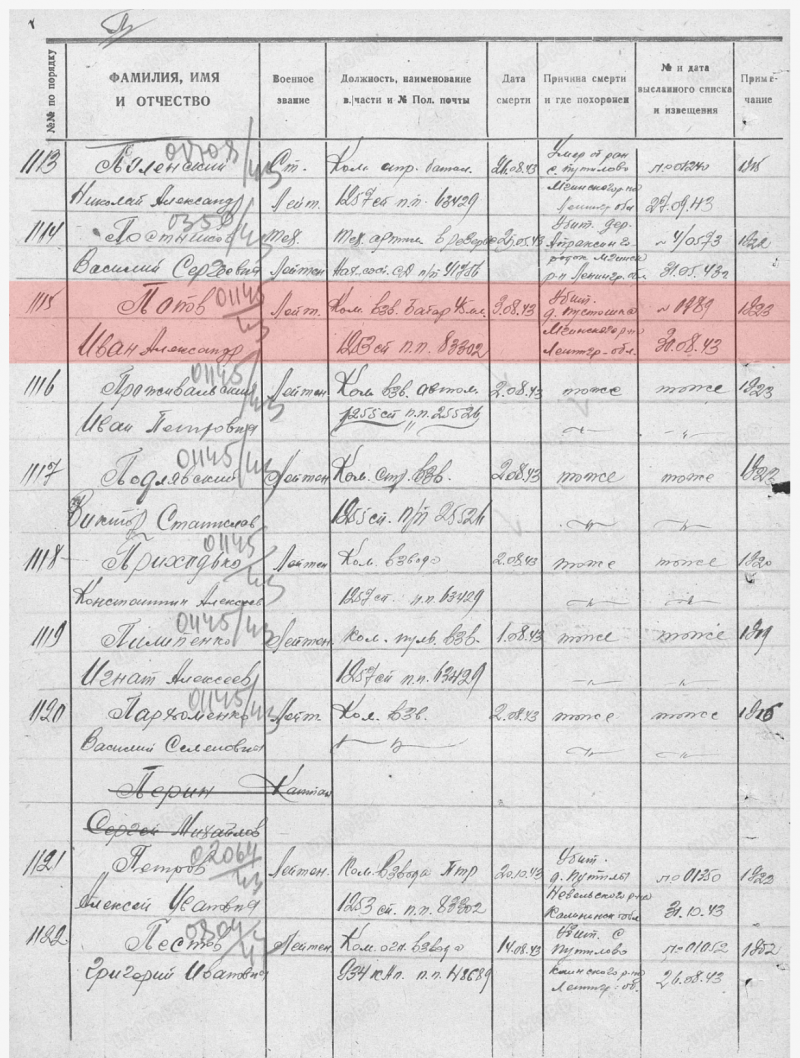 №№ по порядку
ФАМИЛИЯ, ИМЯ И ОТЧЕСТВО
Военное звание
Должность, наименование в./части и № Пол. почты
Дата смерти
Причина смерти и где похоронен
№ и дата высланного списка и извещения
Приме-чание
1113 Ст. Ком. стр. батал. 26.08.43 Умер от ран п-01240
Николай Александр Лейт. 1257 сп п.п. 63429 с. Путилово Мгинского р-на 27.09.43
1114 Постников Тех. Тех. артил. в резерве Убит. дер. 1922
Василий Сергеевич Лейтен Нач. сост. СД 31.05.43г
1115 Попов 01145/43 Лейт. Ком. взв. Батар 45 мм. 3.08.43 Убит. д. Пустошка 1923
Иван Александр 1253 сп п.п. 83302 Мгинского р-на Ленингр. обл. 30.08.43
1116 01145/43 Лейтен. Ком взв. автом. 2.08.43 тоже тоже 1923
Иван Петрович 1255 сп п.п. 25526 —"— —"—
1117 Подлявский 01145/43 Лейтен Ком. стр. взв. 2.08.43 тоже тоже
Виктор Станислав 1255 сп. п/п 25526 —"— —"—
1118 Приходько 01145/43 Лейтен Ком. взвода 2.08.43 тоже тоже 1920
Константин Алексеев 1257 сп. п.п. 63429 —"— —"—
1119 Пилипенко 01145/43 Лейтен. Ком. пулв. взв. 1.08.43 тоже тоже 1919
Игнат Алексеев 1257 сп п.п. 63429 —"— —"—
1120 Пархоменко 01145/43 Лейт. Ком. взв. 2.08.43 тоже тоже
Василий Семенович —"— —"— —"—
Перин Капитан
Сергей Михайлов
1121 Петров 02064/43 Лейтен. Ком. взвода ПТР 20.10.43 Убит. п-01350 1922
Алексей Иванович 1253 сп. п.п. 83302 Невельского р-на Калининск. обл 31.10.43
1122 Пестов Лейтен Ком. огн. взвода 14.08.43 Убит. с Путилово п-01052
Григорий Иванович 934 кАп. п.п. 48689 Ленингр. об. 26.08.43